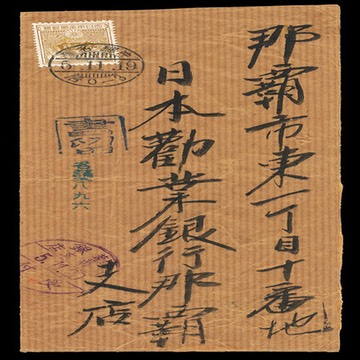 那覇市東一丁目十番地
日本勧業銀行那覇
支店
書留
名護八九六
5.11.19